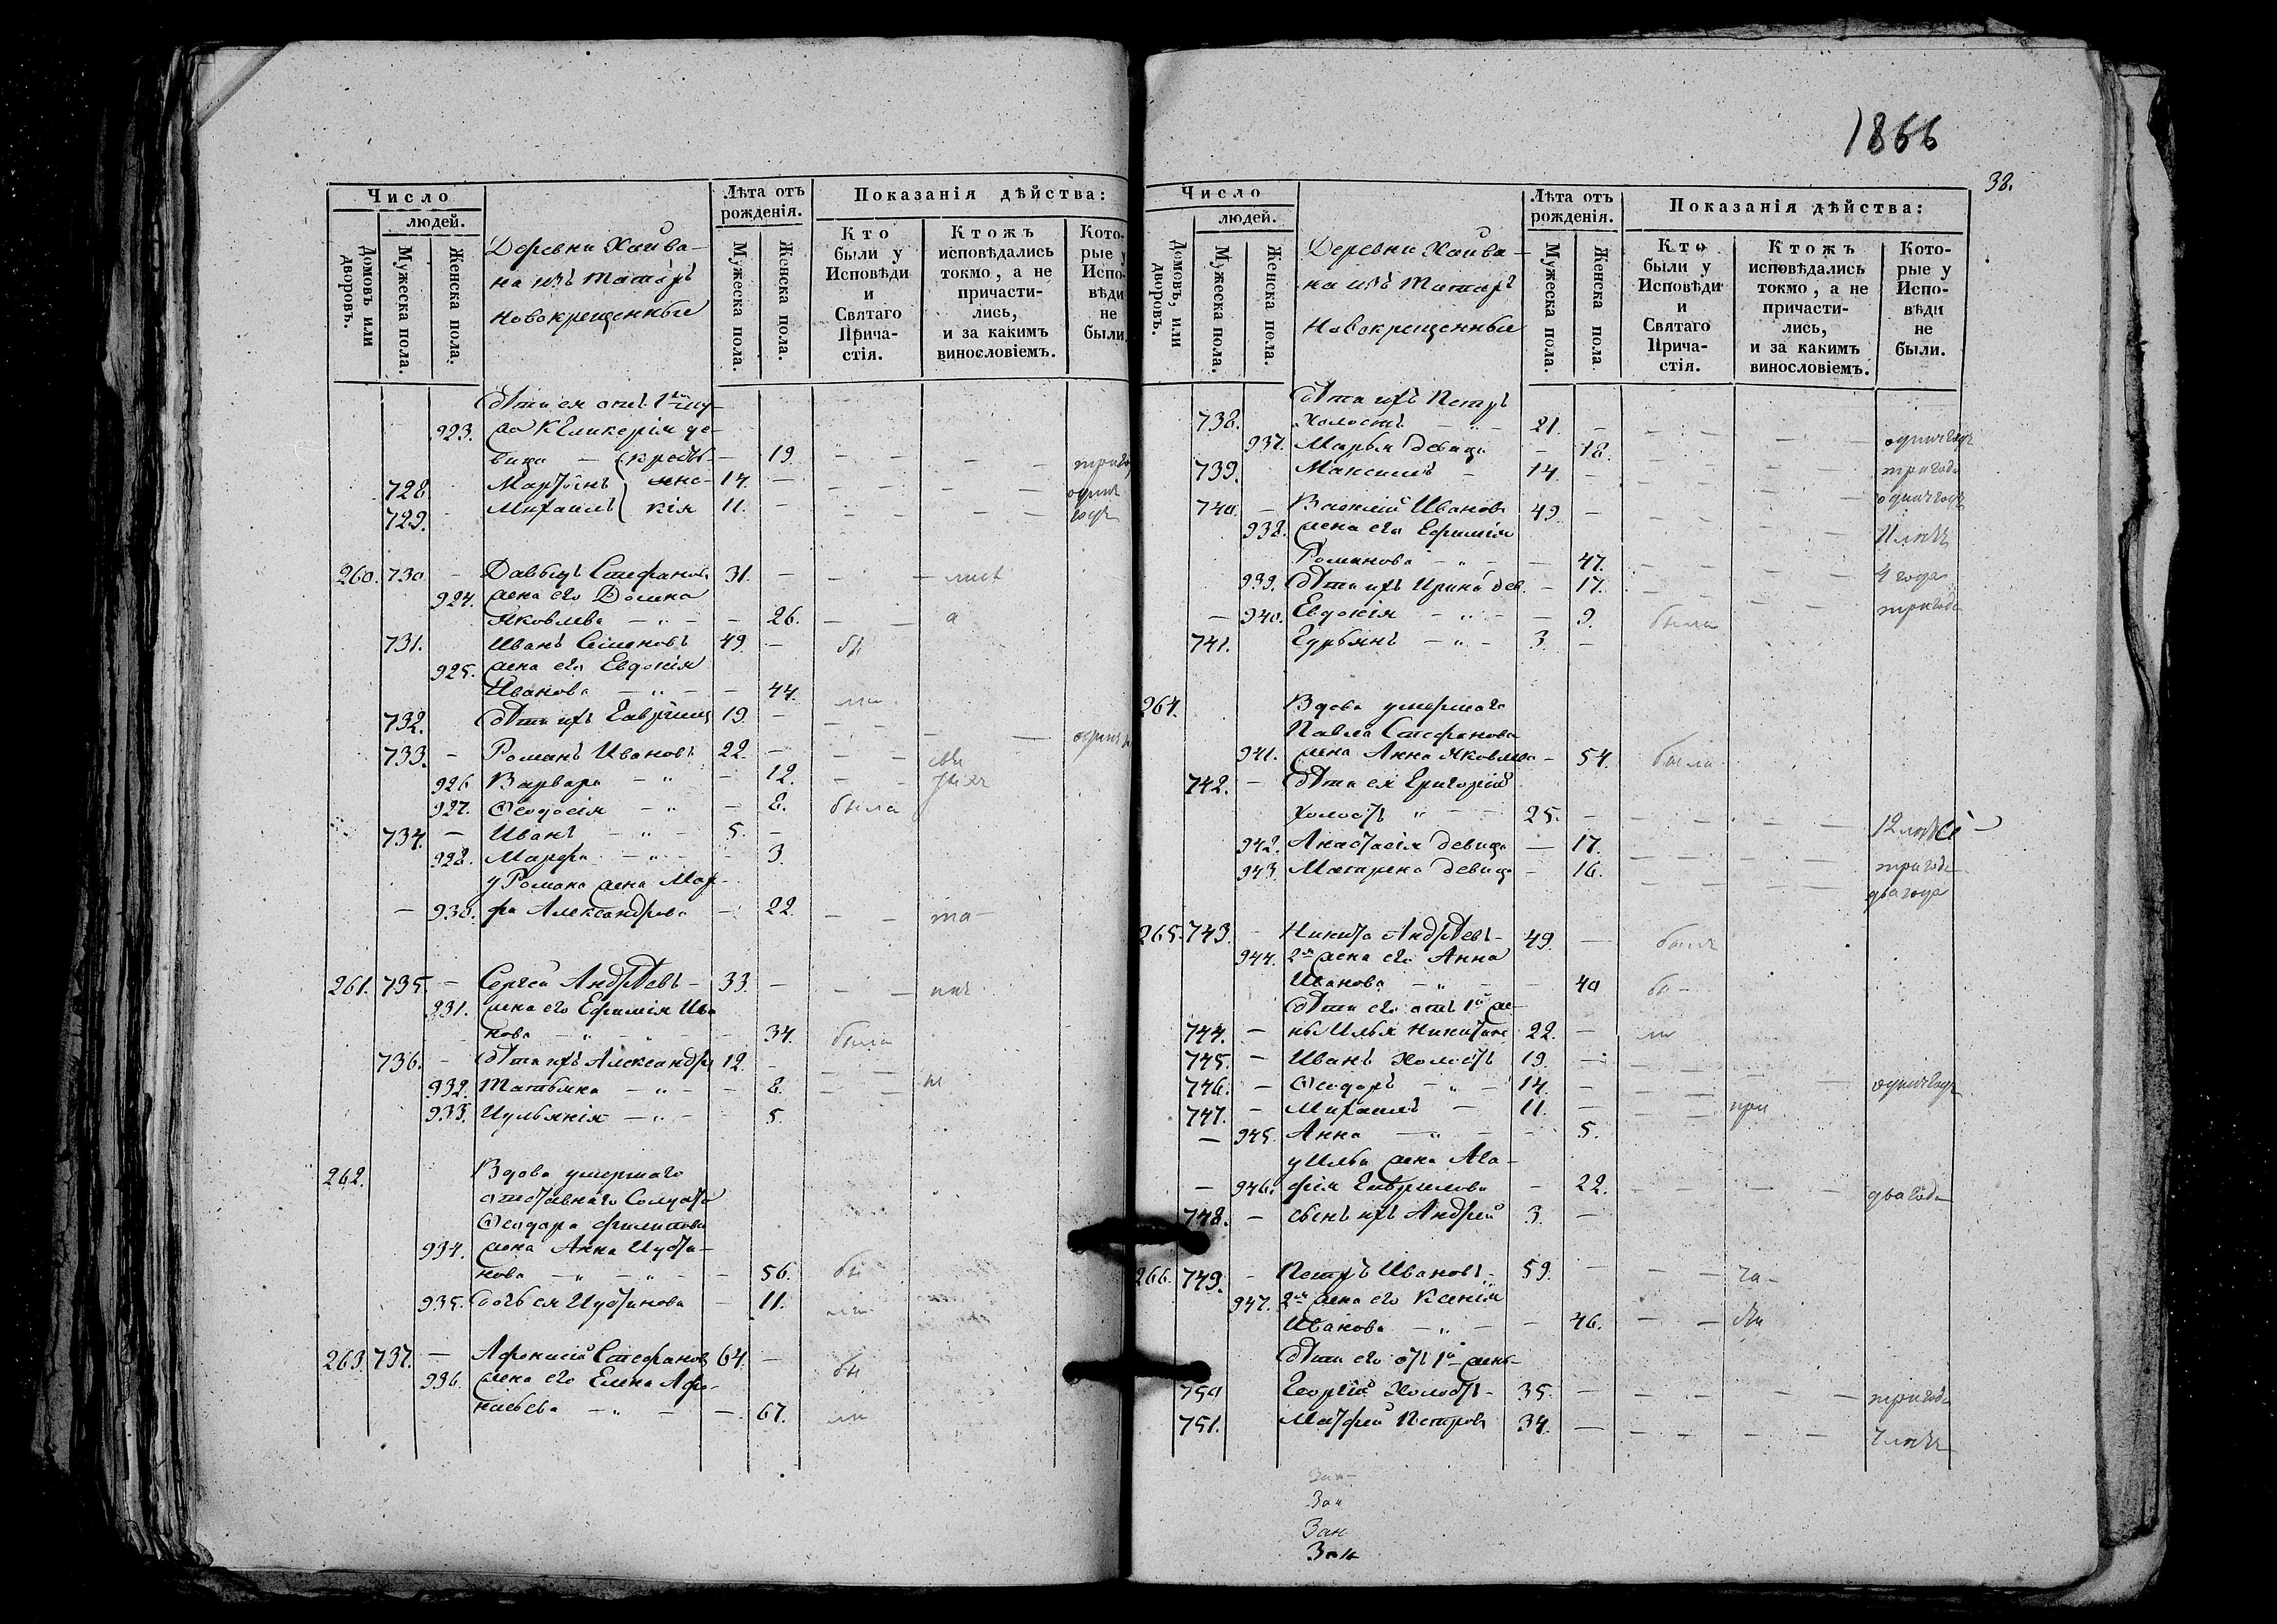 Число
людей.
Домовъ или дворовъ.
Мужеска пола.
Женска пола.
Деревни Хайва-
на изъ татаръ
новокрещенные
Лѣта отъ
рожденія.
Мужеска пола.
Женска пола.
Показанія дѣйства:
Кто
были у
Исповѣди
и
Святаго
Прича-
стія.
Ктожъ
исповѣдались
токмо, а не
причасти-
лись,
и за какимъ
винословіемъ.
Кото-
рые у
Испо-
вѣди
не
были.
Дѣти ея отъ 1го му-
923. жа Гликерія де-
вица — 19.
728. 14.
729. Михаилъ кія 11.
260. 730 — Давыдъ Стефановъ 31. —
924. жена его Домна
Яковлева — „ — — 26.
731. Иванъ Семеновъ 49. — бы
925. жена его Евдокія
Иванова — „ — — 44. ли
732. Дѣти ихъ Гавріилъ 19. —
733. — Романъ Ивановъ 22. —
926 Варвара — „ — 12.
927. Ѳеодосія — „ — 8. была
734. — Иванъ — „ — 5. —
928. Марфа — „ — 3.
у Романа жена Мар-
— 930. фа Александрова — 22.
261. 735. — Сергей Андрѣевъ — 33. —
931. жена его Ефимія Ива
нова — „ — 34. была
736. — Дѣти ихъ Александръ 12. —
932. Татьяна — „ — 8.
933. Иульянія — „ — 5.
262. Вдова умершаго
отставнаго Солдата
Ѳеодора Филипова
934. жена Анна Иуста-
нова — „ — „ — 56. бы
935. Дочь ея Иустинова — 11. ли
263. 737. — Афонасій Стефановъ 64. — бы
936. жена его Елена Афо-
насьева — „ — — 67. ли
1866
38.
Число
людей.
Домовъ, или дворовъ.
Мужеска пола.
Женска пола.
Деревни Хайва-
на изъ татаръ
Новокрещенные
Лѣта отъ
рожденія.
Мужеска пола.
Женска пола
Показанія дѣйства:
Кто
были у
Исповѣди
и
Святаго
Прича-
стія.
Ктожъ
исповѣдались
токмо, а не
причасти-
лись,
и за какимъ
винословіемъ.
Кото-
рые у
Испо-
вѣди
не
были.
Дѣти ихъ Петръ
738. холостъ — „ — 21. — одинъ годъ
937. Марья девица — 18. три года
739. Максимъ — 14. — одинъ годъ
740. — Василій Ивановъ 49. —
938. жена его Ефимія
Романова — „ — — 47. 4 года
939. Дѣти ихъ Ирина дев. — 17. три года
— 940. Евдокія — „ — — 9. была
741. Гурьянъ — „ — 3. —
264. Вдова умершаго
Павла Стефанова
941. жена Анна Яковлева — 54. была
742. — Дѣти ея Григорій
холостъ „ — 25. —
942. Анастасія девица — 17. три года
943. Матрена девица — 16. два года
265. 743. — Никита Андрѣевъ — 49. — былъ
944. 2я жена его Анна
Иванова — „ — — 40 бы —
Дѣти его отъ 1й же-
744. — ны Илья Никитинъ 22. — ли
745. — Иванъ Холостъ 19. —
746. — Ѳеодоръ — „ — 14. — одинъ годъ
747. — Михаилъ — 11. — при
— 945. Анна — „ — — 5.
у Ильи жена Ага-
— 946. фія Гаврилова — 22. два года
748. — сынъ ихъ Андрей 3. —
266. 749. — Петръ Ивановъ — 59. —
947. 2я жена его Ксенія
Иванова — „ — — 46.
Дѣти его отъ 1й жены
750 Георгій Холостъ — 35. — три года
751. Матфей Петровъ 34. —
Зан
Зан
Зан